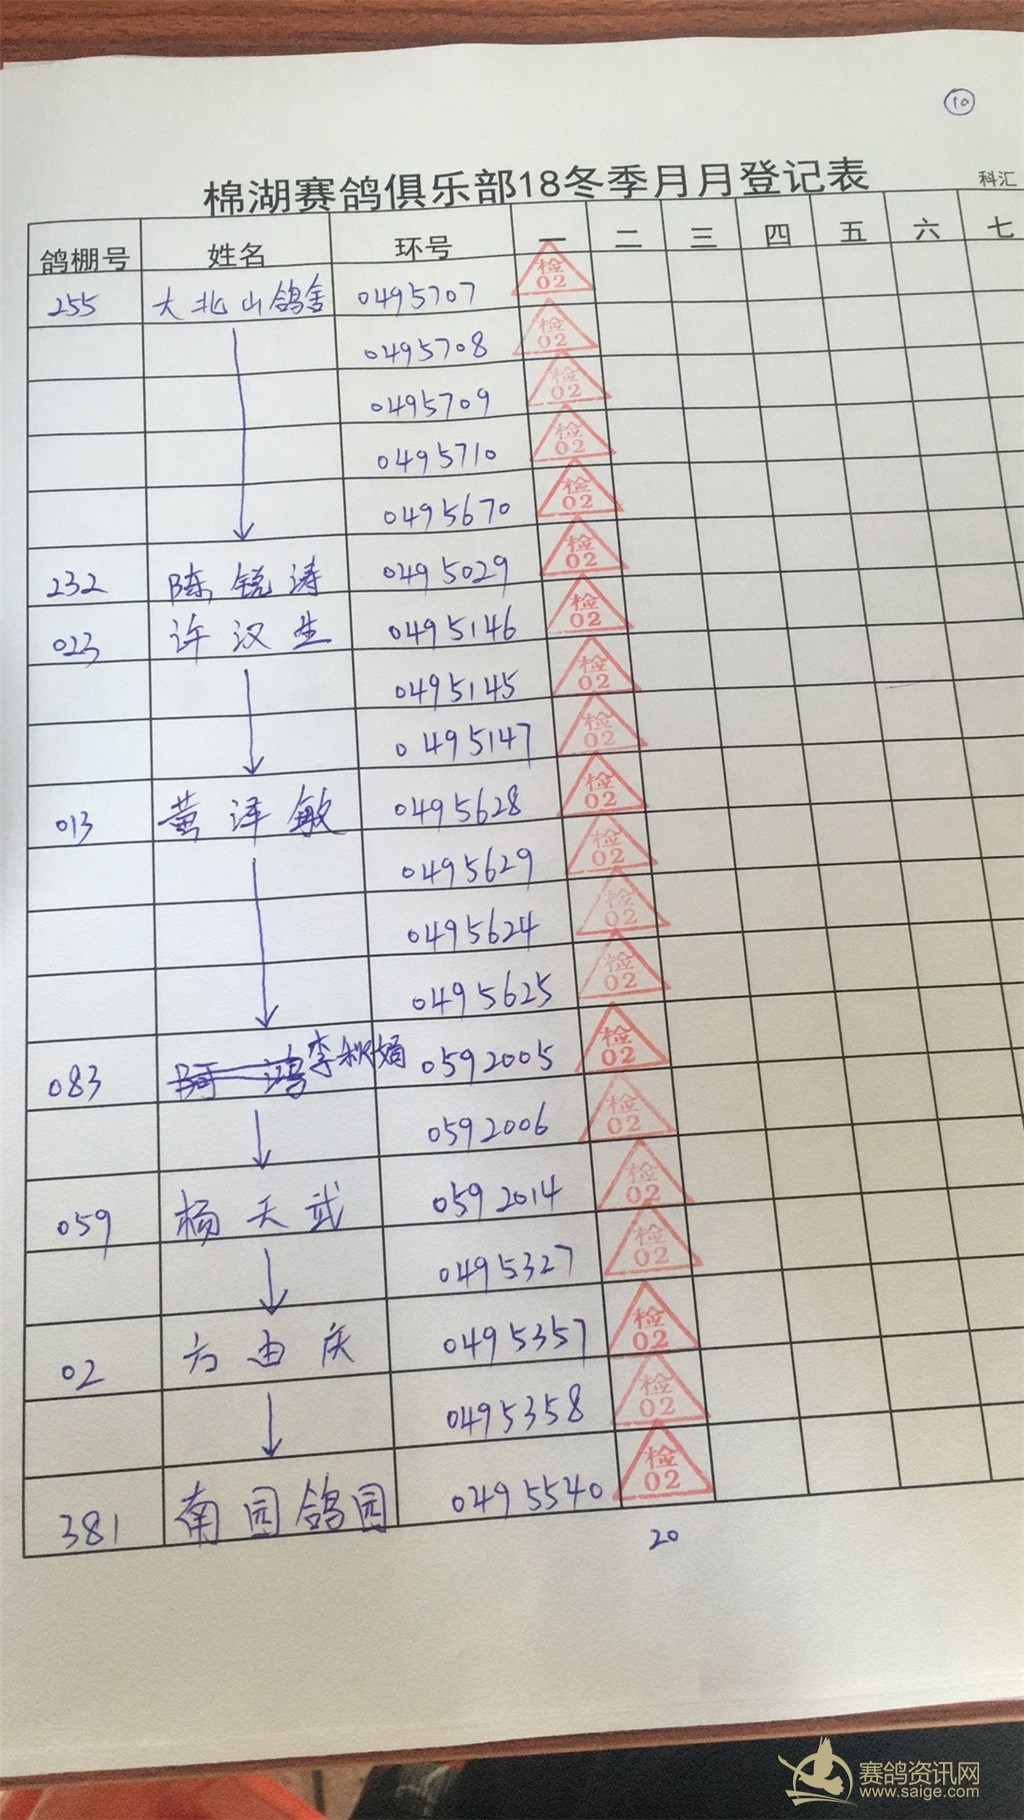 10
棉湖赛鸽俱乐部18冬季月月登记表 科汇
鸽棚号 姓名 环号 一 二 三 四 五 六 七
255 大北山鸽舍 0495707 检02
0495708 检02
0495709 检02
0495710 检02
0495670 检02
232 陈锐涛 0495029 检02
023 许汉生 0495146 检02
0495145 检02
0495147 检02
013 黄泽敏 0495628 检02
0495629 检02
0495624 检02
0495625 检02
083 李秋娟 0592005 检02
0592006 检02
059 杨天武 0592014 检02
0495327 检02
02 方由庆 0495357 检02
0495358 检02
381 南园鸽园 0495540 检02
20
赛鸽资讯网
www.saige.com